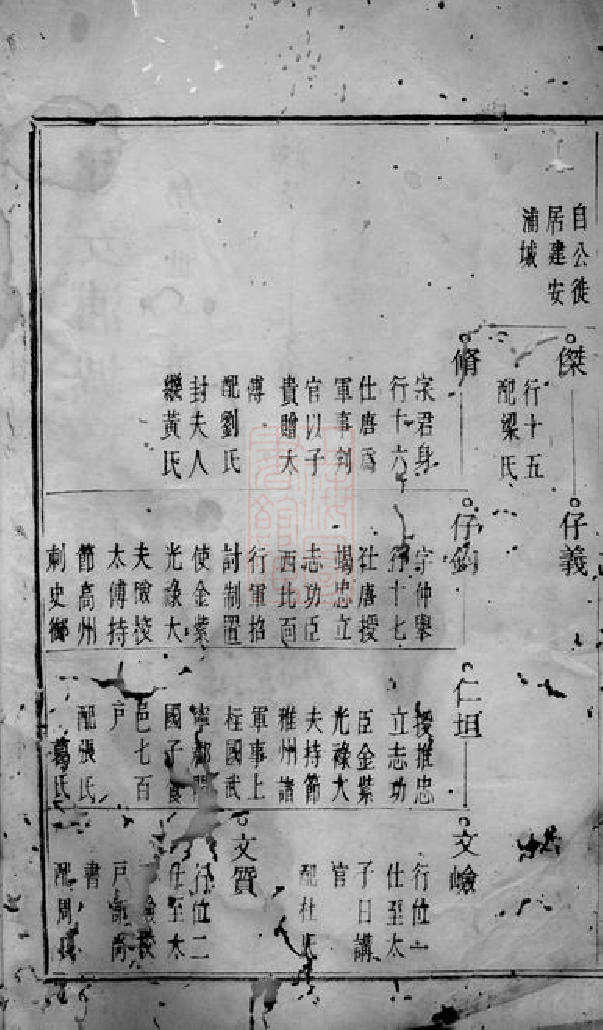 自公徙
居建安
浦城
傑
行十五
配梁氏
脩
字君身
行十六
仕唐爲
軍事判
官以子
貴贈太
傅
配劉氏
封夫人
繼黃氏
仔義
仔鈞
字仲舉
行十七
仕唐授
竭忠立
志功臣
西北面
行軍招
討制置
使金紫
光祿大
夫檢校
太傅持
節高州
刺史鄉
仁垣
授推忠
立志功
臣金紫
光祿大
夫持節
雅州諸
軍事上
柱國武
國子食
邑七百
戶
配張氏
葛氏
文嶮
行位一
仕至太
子日講
官
配杜氏
文質
行位二
仕至太
戶部尚
書
配周氏